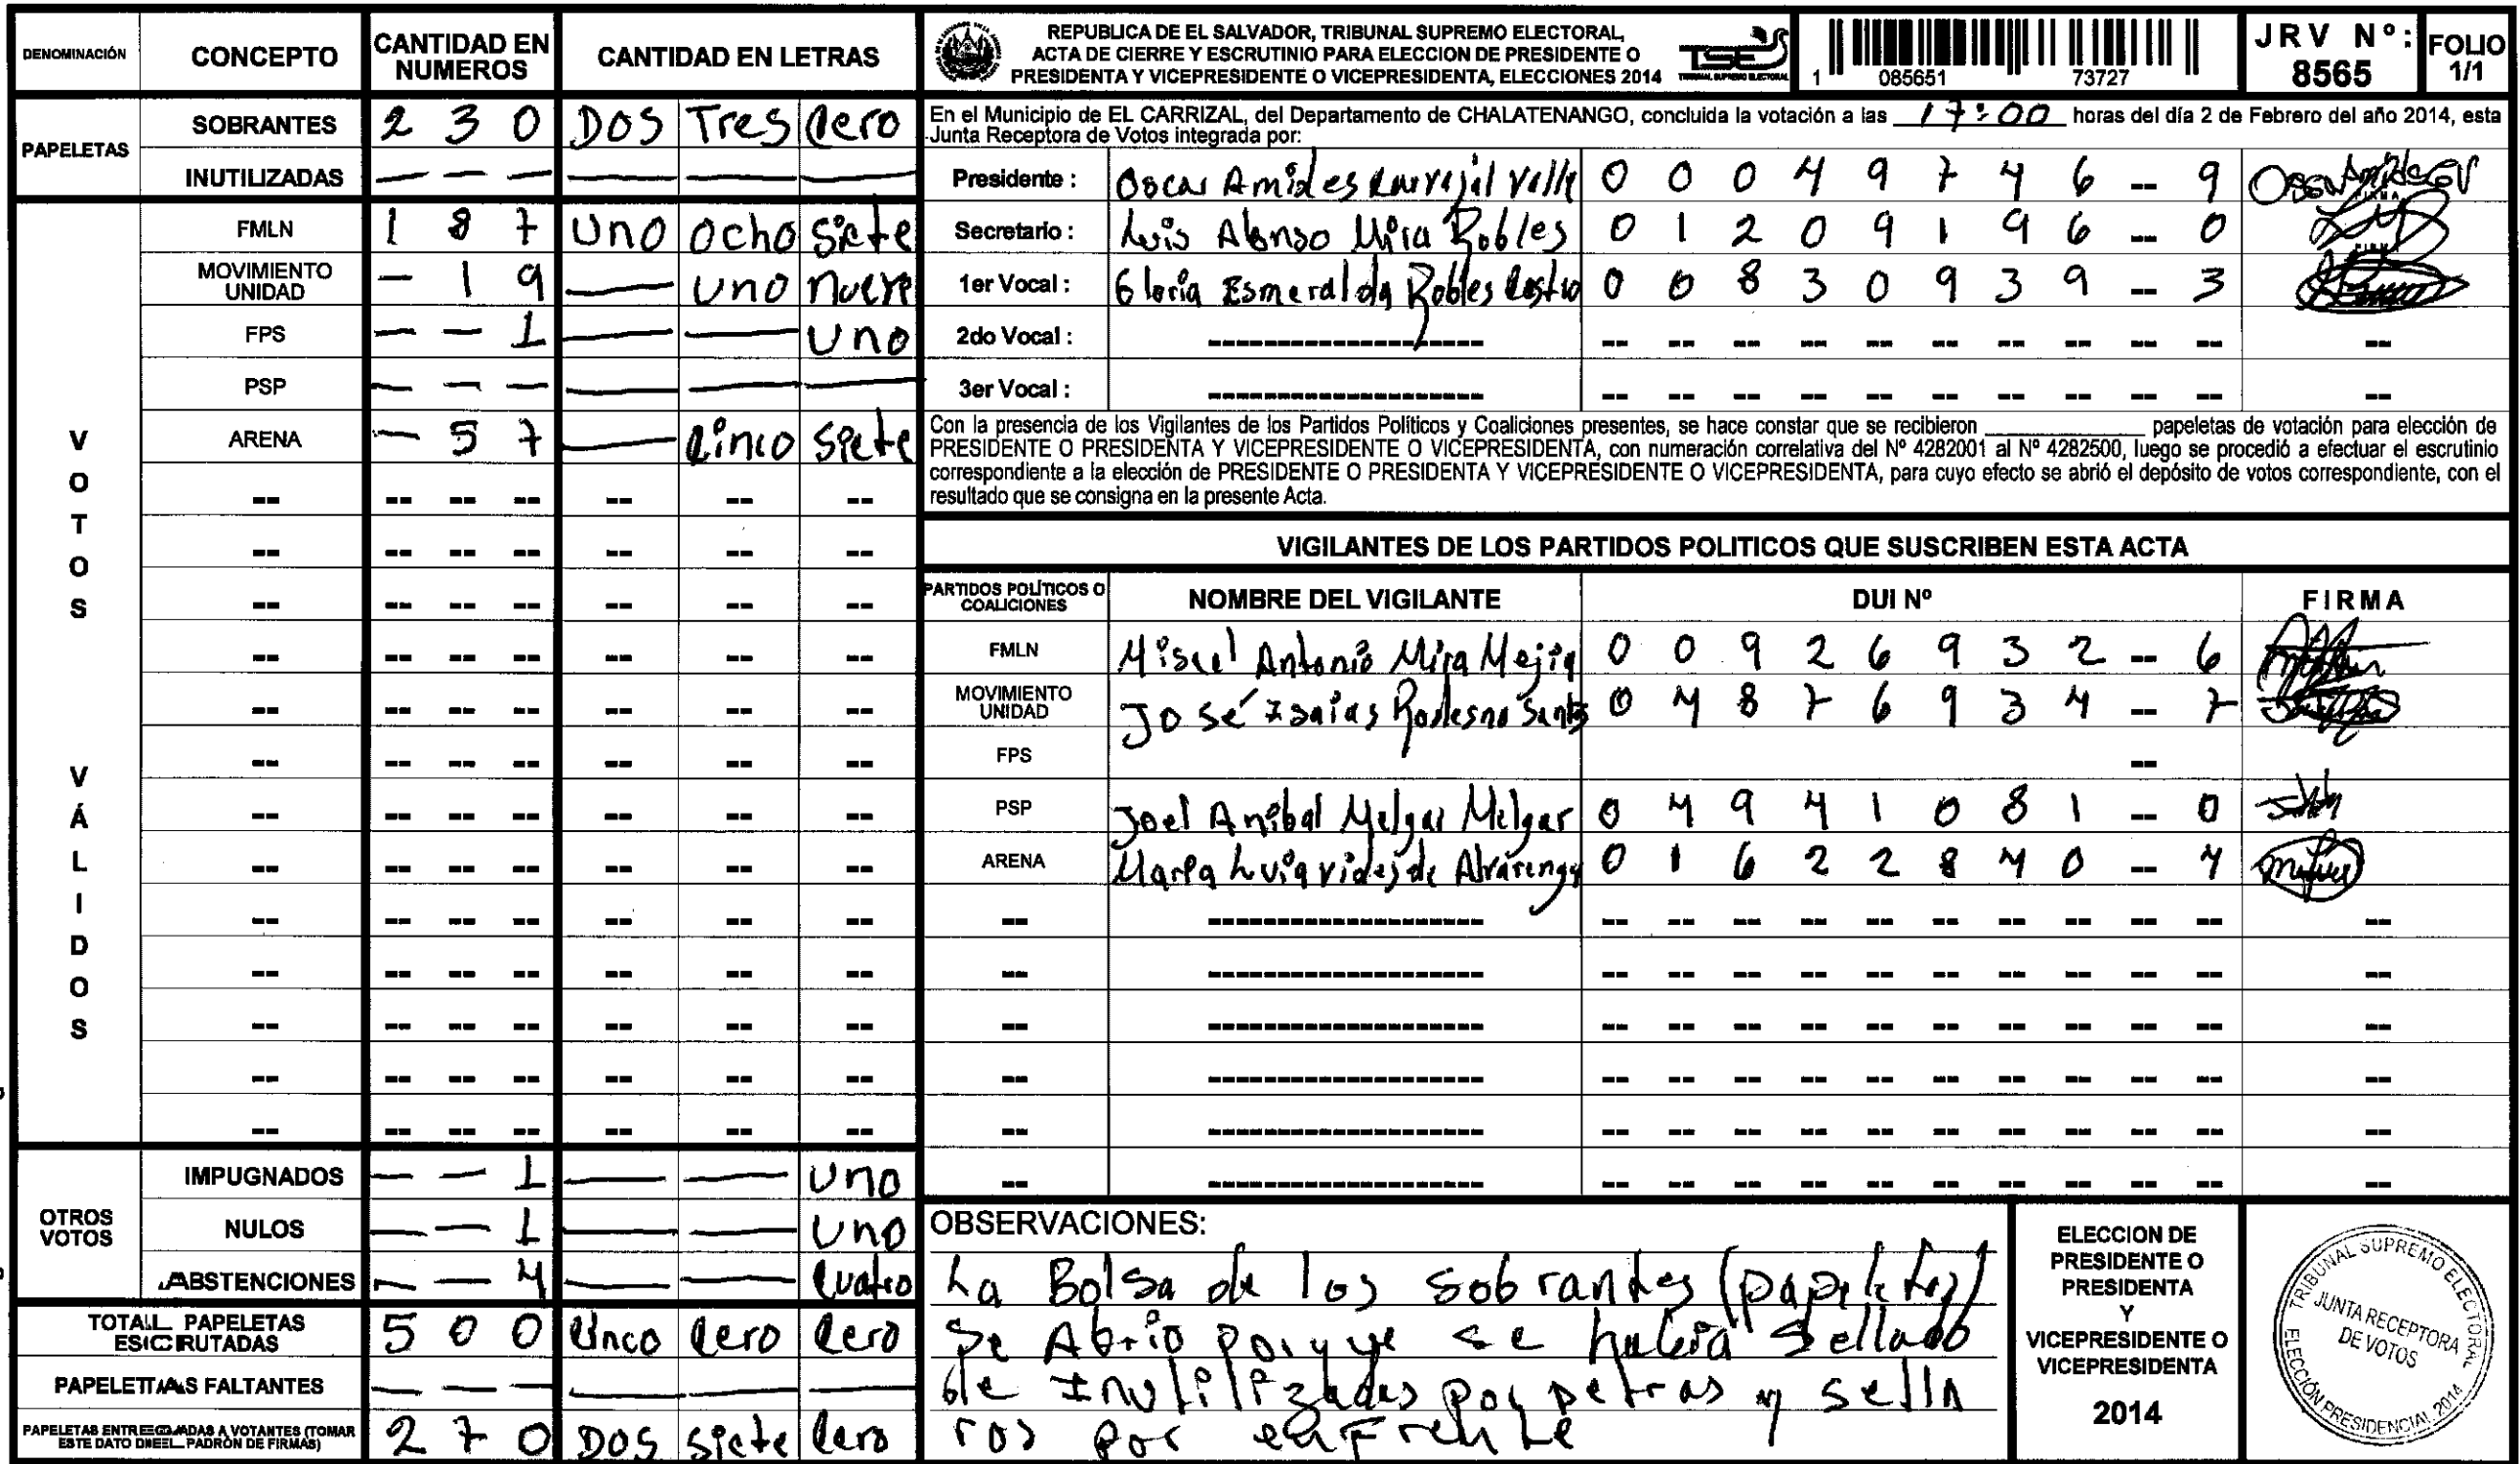 DENOMINACIÓN CONCEPTO CANTIDAD EN NUMEROS CANTIDAD EN LETRAS
PAPELETAS
SOBRANTES 2 3 0 DOS Tres Cero
INUTILIZADAS — — — — — —
VOTOS VÁLIDOS
FMLN 1 8 7 Uno Ocho Siete
MOVIMIENTO UNIDAD — 1 9 — Uno Nueve
FPS — — 1 — — Uno
PSP — — — — — —
ARENA — 5 7 — Cinco Siete
OTROS VOTOS
IMPUGNADOS — — 1 — — Uno
NULOS — — 1 — — Uno
ABSTENCIONES — — 4 — — Cuatro
TOTAL PAPELETAS ESCRUTADAS 5 0 0 Cinco Cero Cero
PAPELETAS FALTANTES — — — — — —
PAPELETAS ENTREGADAS A VOTANTES (TOMAR ESTE DATO DEL PADRÓN DE FIRMAS) 2 7 0 DOS Siete Cero
REPUBLICA DE EL SALVADOR, TRIBUNAL SUPREMO ELECTORAL,
ACTA DE CIERRE Y ESCRUTINIO PARA ELECCION DE PRESIDENTE O
PRESIDENTA Y VICEPRESIDENTE O VICEPRESIDENTA, ELECCIONES 2014
TSE
TRIBUNAL SUPREMO ELECTORAL
1 085651 73727
JRV Nº: 8565
FOLIO 1/1
En el Municipio de EL CARRIZAL, del Departamento de CHALATENANGO, concluida la votación a las 17:00 horas del día 2 de Febrero del año 2014, esta
Junta Receptora de Votos integrada por:
Presidente : Oscar Amides Carvajal Valle 0 0 0 4 9 7 4 6 -- 9
Secretario : Luis Alonso Mira Robles 0 1 2 0 9 1 9 6 -- 0
1er Vocal : Gloria Esmeralda Robles Castro 0 0 8 3 0 9 3 9 -- 3
2do Vocal :
3er Vocal :
Con la presencia de los Vigilantes de los Partidos Políticos y Coaliciones presentes, se hace constar que se recibieron ____ papeletas de votación para elección de
PRESIDENTE O PRESIDENTA Y VICEPRESIDENTE O VICEPRESIDENTA, con numeración correlativa del Nº 4282001 al Nº 4282500, luego se procedió a efectuar el escrutinio
correspondiente a la elección de PRESIDENTE O PRESIDENTA Y VICEPRESIDENTE O VICEPRESIDENTA, para cuyo efecto se abrió el depósito de votos correspondiente, con el
resultado que se consigna en la presente Acta.
VIGILANTES DE LOS PARTIDOS POLITICOS QUE SUSCRIBEN ESTA ACTA
PARTIDOS POLÍTICOS O COALICIONES NOMBRE DEL VIGILANTE DUI Nº FIRMA
FMLN Antonio Mira Mejia 0 0 9 2 6 9 3 2 -- 6
MOVIMIENTO UNIDAD José Isaias 0 4 8 7 6 9 3 4 -- 7
FPS --
PSP Joel Anibal Melgar Melgar 0 4 9 4 1 0 8 1 -- 0
ARENA Maria Luia Vides de Alvarenga 0 1 6 2 2 8 4 0 -- 4
OBSERVACIONES:
La Bolsa de los sobrantes (papeletas)
Se Abrio porque se habia Sellado
de Inutilizadas por detras y sella
ros por enfrente
ELECCION DE
PRESIDENTE O
PRESIDENTA
Y
VICEPRESIDENTE O
VICEPRESIDENTA
2014
TRIBUNAL SUPREMO ELECTORAL
JUNTA RECEPTORA
DE VOTOS
ELECCIÓN PRESIDENCIAL 2014